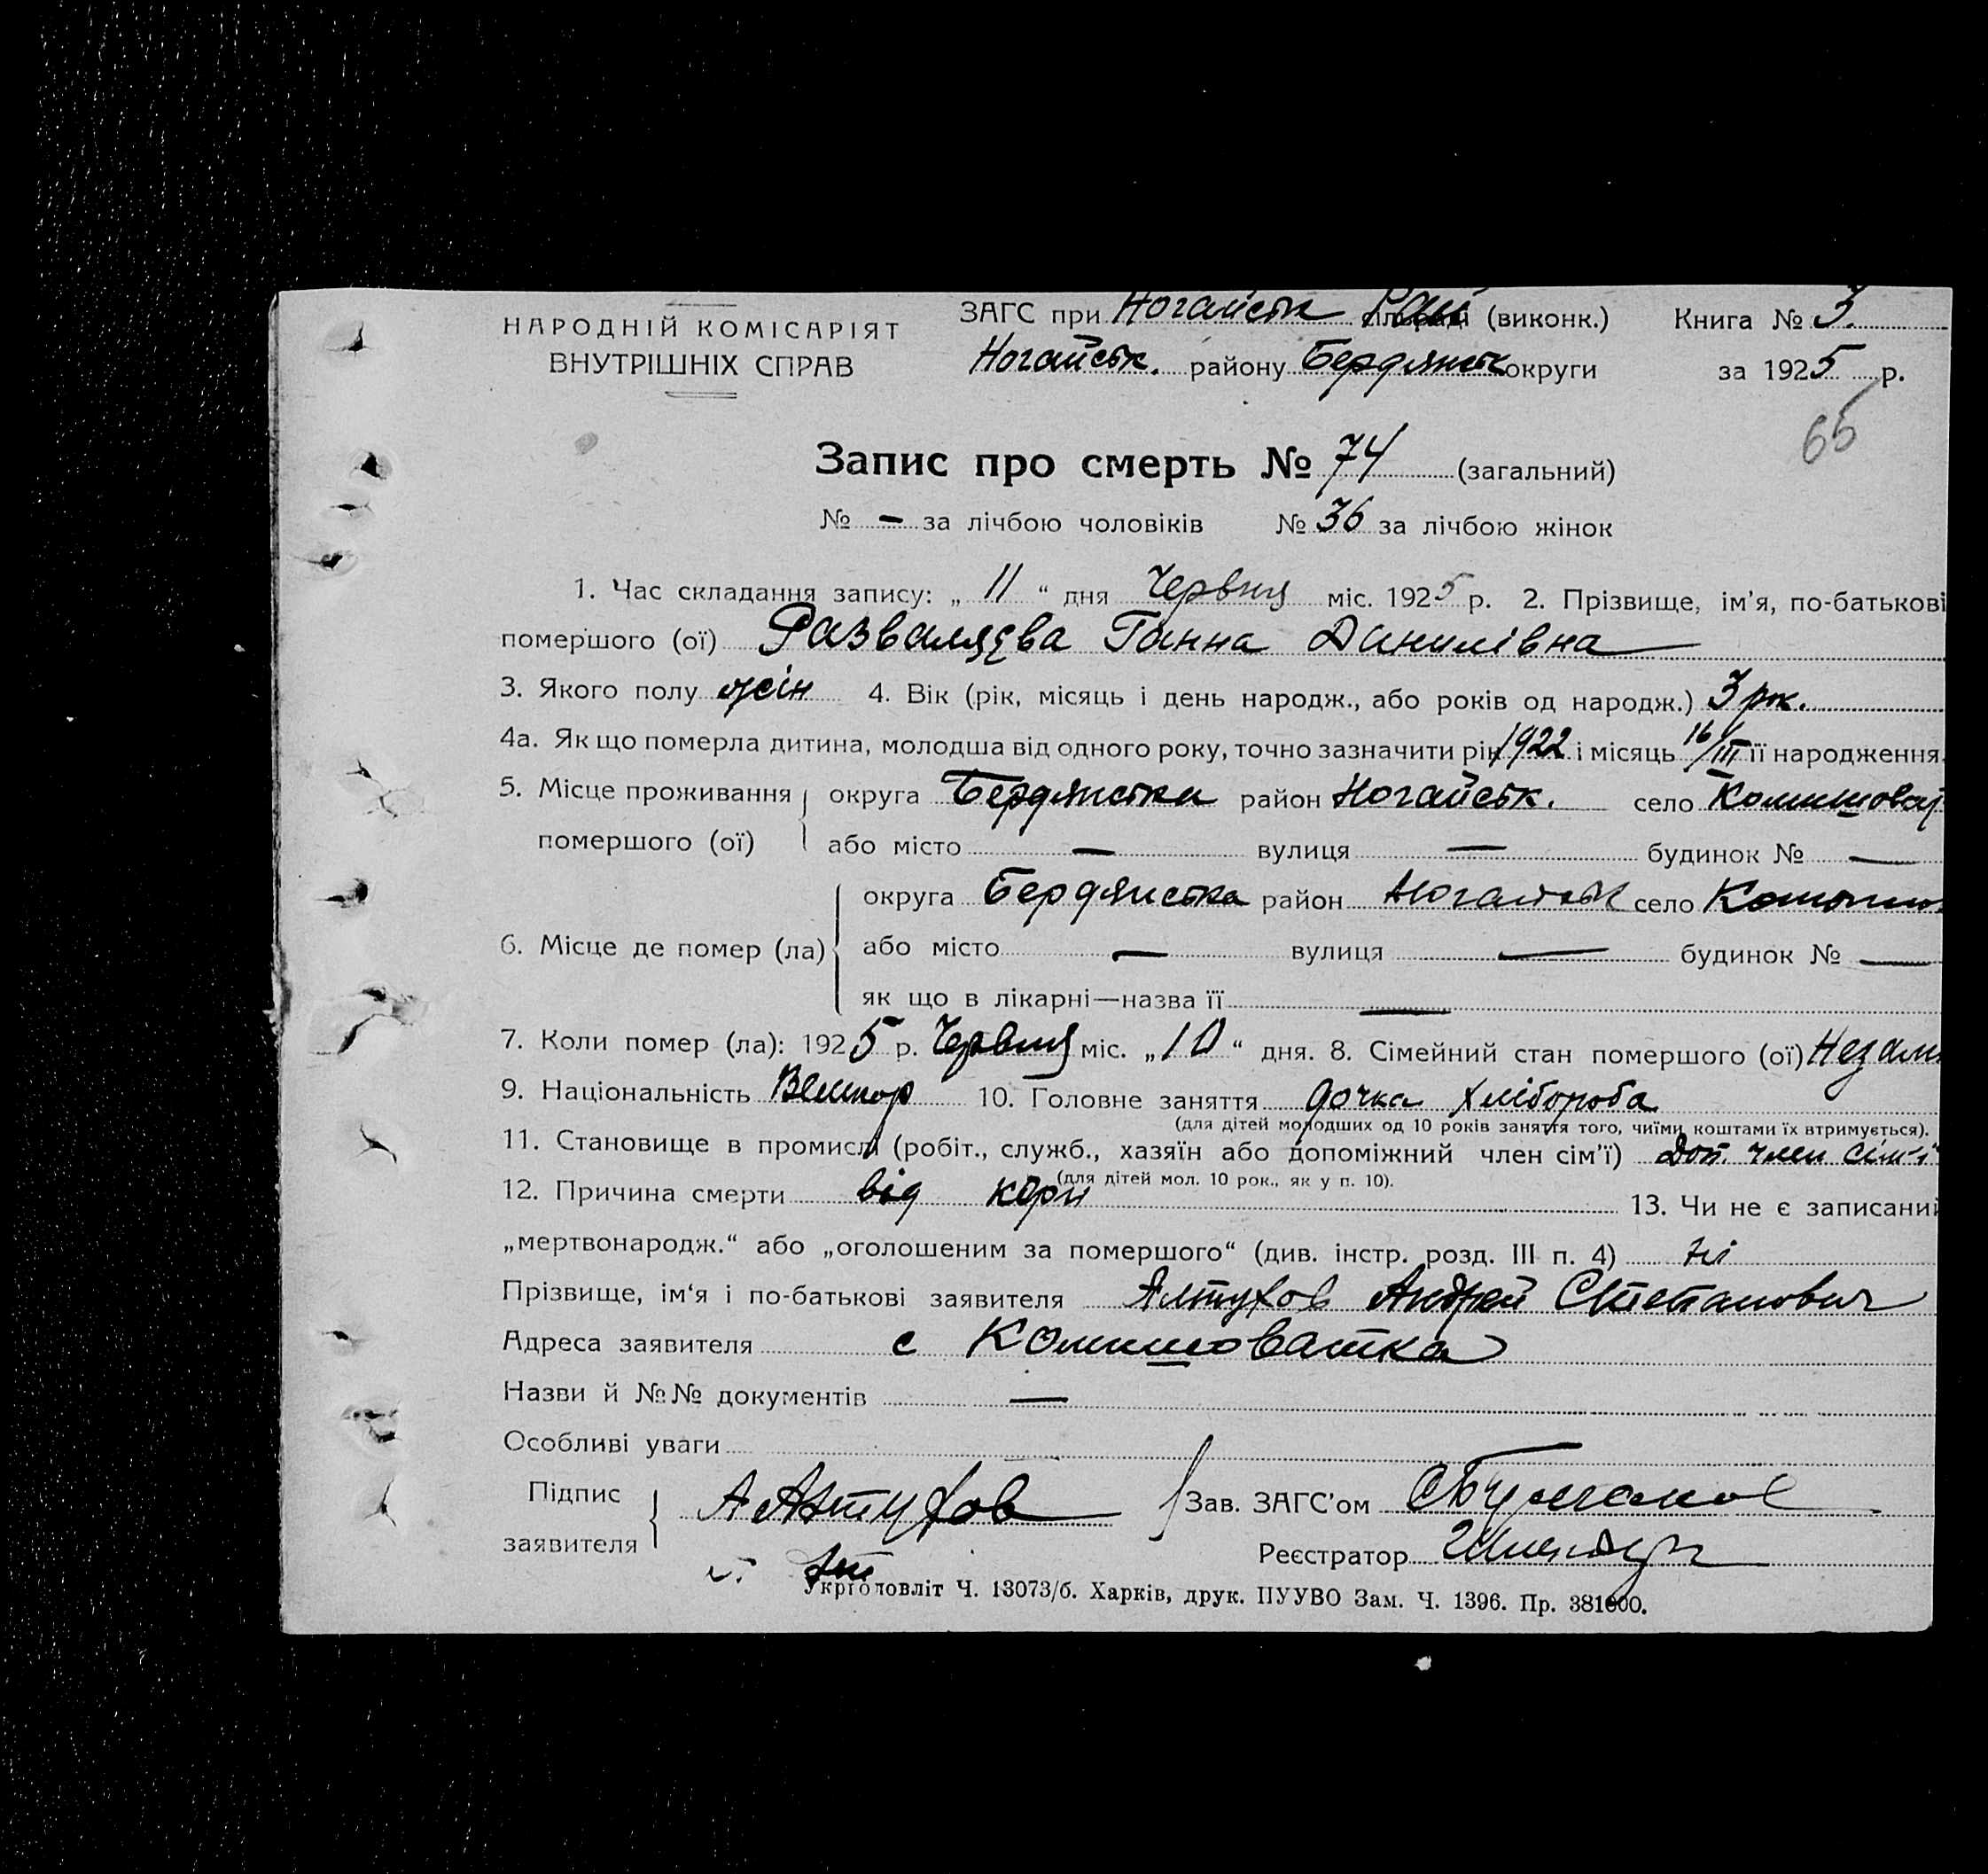 НАРОДНІЙ КОМІСАРІЯТ
ВНУТРІШНІХ СПРАВ
ЗАГС при Ногайськ Рай (виконк.) Книга № 3.
Ногайськ. району Бердянськ округи за 1925 р.
65
Запис про смерть № 74 (загальний)
№ – за лічбою чоловіків № 36 за лічбою жінок
1. Час складання запису: „ 11 “ дня Червня міс. 1925 р. 2. Прізвище, ім'я, по-батькові
помершого (ої) Разваляєва Ганна Данилівна
3. Якого полу жін 4. Вік (рік, місяць і день народж., або років од народж.) 3 рок.
4а. Як що померла дитина, молодша від одного року, точно зазначити рік 1922 і місяць 16/III її народження.
5. Місце проживання помершого (ої) округа Бердянська район Ногайськ. село Комишоват
або місто — вулиця — будинок № —
6. Місце де помер (ла) округа Бердянська район Ногайськ село
або місто — вулиця — будинок № —
як що в лікарні—назва її —
7. Коли помер (ла): 1925 р. Червня міс. „10“ дня. 8. Сімейний стан помершого (ої) Незам
9. Національність 10. Головне заняття дочка хлібороба
(для дітей молодших од 10 років заняття того, чиїми коштами їх втримується).
11. Становище в промислі (робіт., служб., хазяїн або допоміжний член сім'ї) Доп. член сім'ї
(для дітей мол. 10 рок., як у п. 10).
12. Причина смерти від корі 13. Чи не є записаний
„мертвонародж.“ або „оголошеним за помершого“ (див. інстр. розд. III п. 4) ні
Прізвище, ім'я і по-батькові заявителя Алтухов Андрей Степанович
Адреса заявителя с Комишоватка
Назви й №№ документів —
Особливі уваги
Підпис заявителя А Алтухов Зав. ЗАГС'ом
Реєстратор
Укрголовліт Ч. 13073/б. Харків, друк. ПУУВО Зам. Ч. 1396. Пр. 381600.